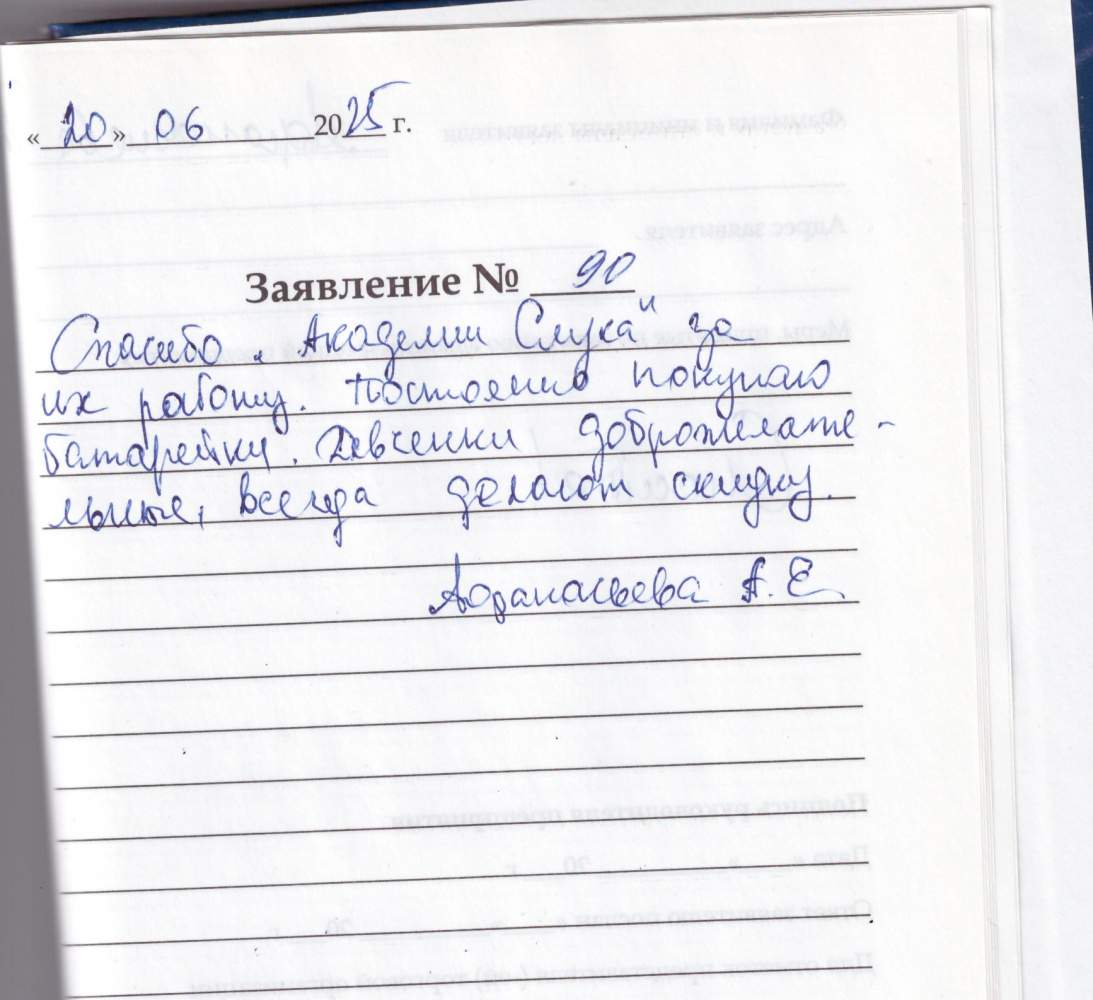 «20» 06 2025 г.
Заявление № 90
Спасибо „Академии Слуха" за
их работу. Постоянно покупаю
батарейки. Девченки доброжелате-
льные, всегда делают скидку.
Афанасьева А.Е